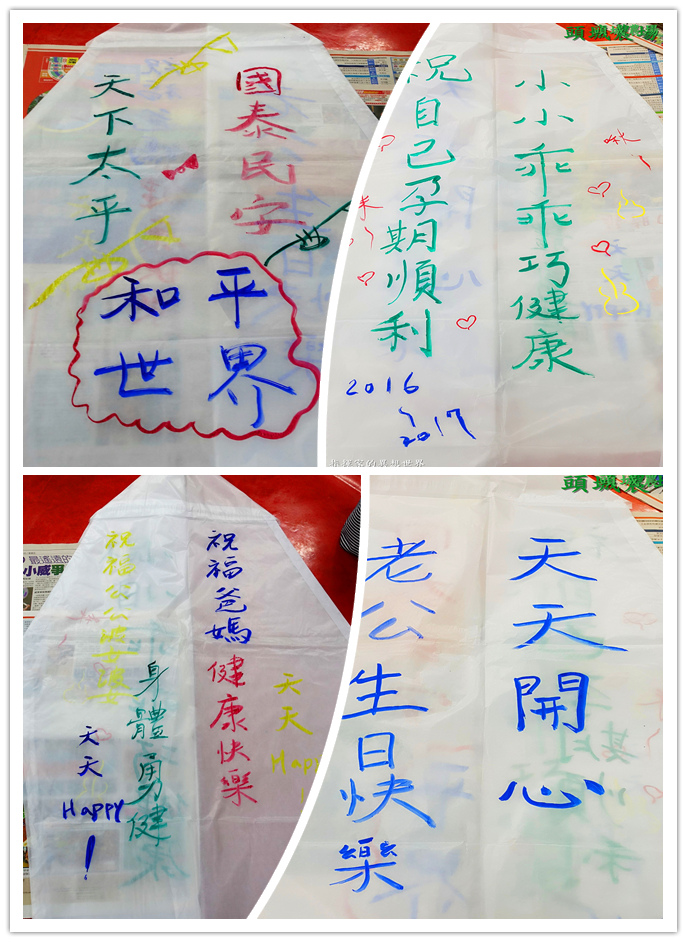 國泰民安
天下太平
和平
世界
小小乖乖巧健康
祝自己孕期順利
2016
~
2017
祝福爸媽健康快樂
天天Happy!
祝福公公婆婆
身體勇健
天天
Happy
!
最遙遠的
天天開心
老公生日快樂